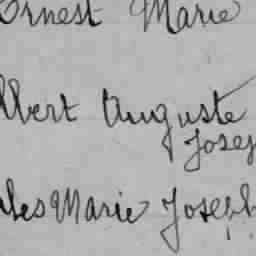 Ernest Marie
lbert Auguste
Josep
les Marie Joseph